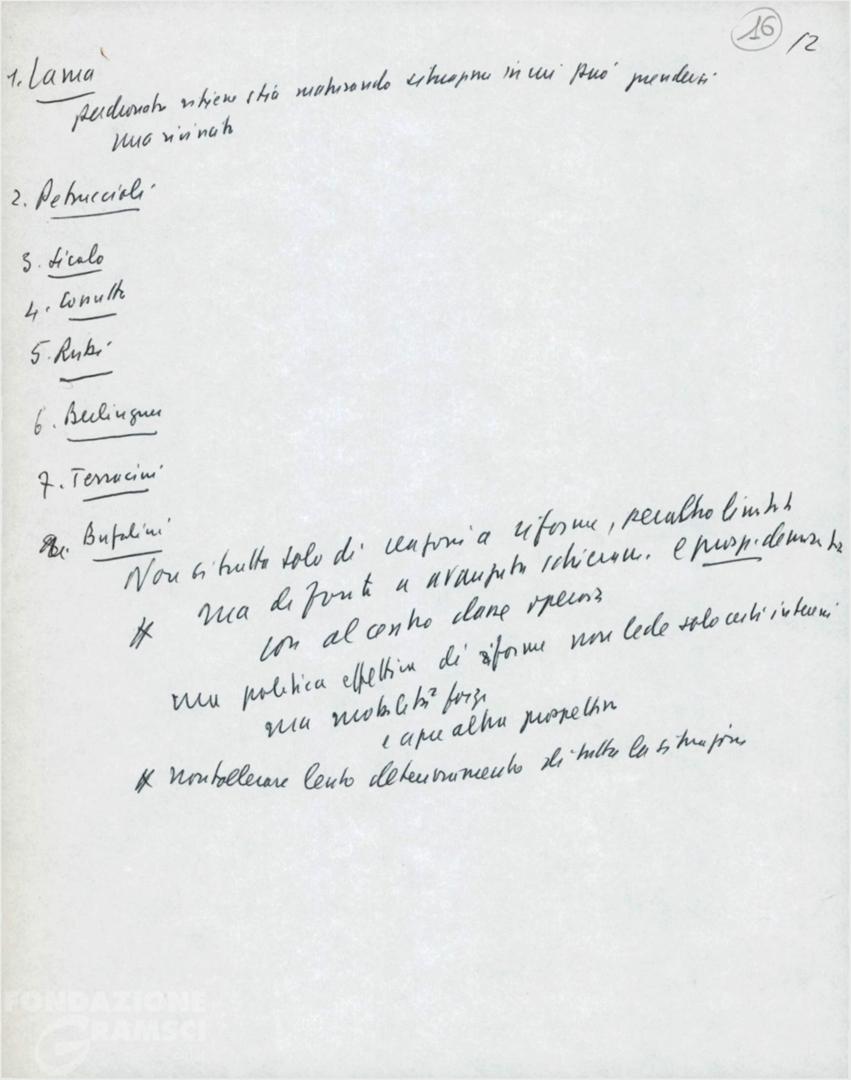 16 /2
1. Lama
padronato ritiene stia maturando situazione in cui può prendersi
una rivincita
2. Petruccioli
3. Sicolo
4. Consulte
5. Rubbi
6. Berlinguer
7. Terracini
8. Bufalini
Non si tratta solo di reazioni a riforme, peraltro limitate
# ma di fronte a avanzata schieram. e prosp. democratica
con al centro classe operaia
una politica effettiva di riforme non lede solo certi interessi
ma mobilità forze
e apre altra prospettiva
# non tollerare lento deterioramento di tutta la situazione
FONDAZIONE
GRAMSCI